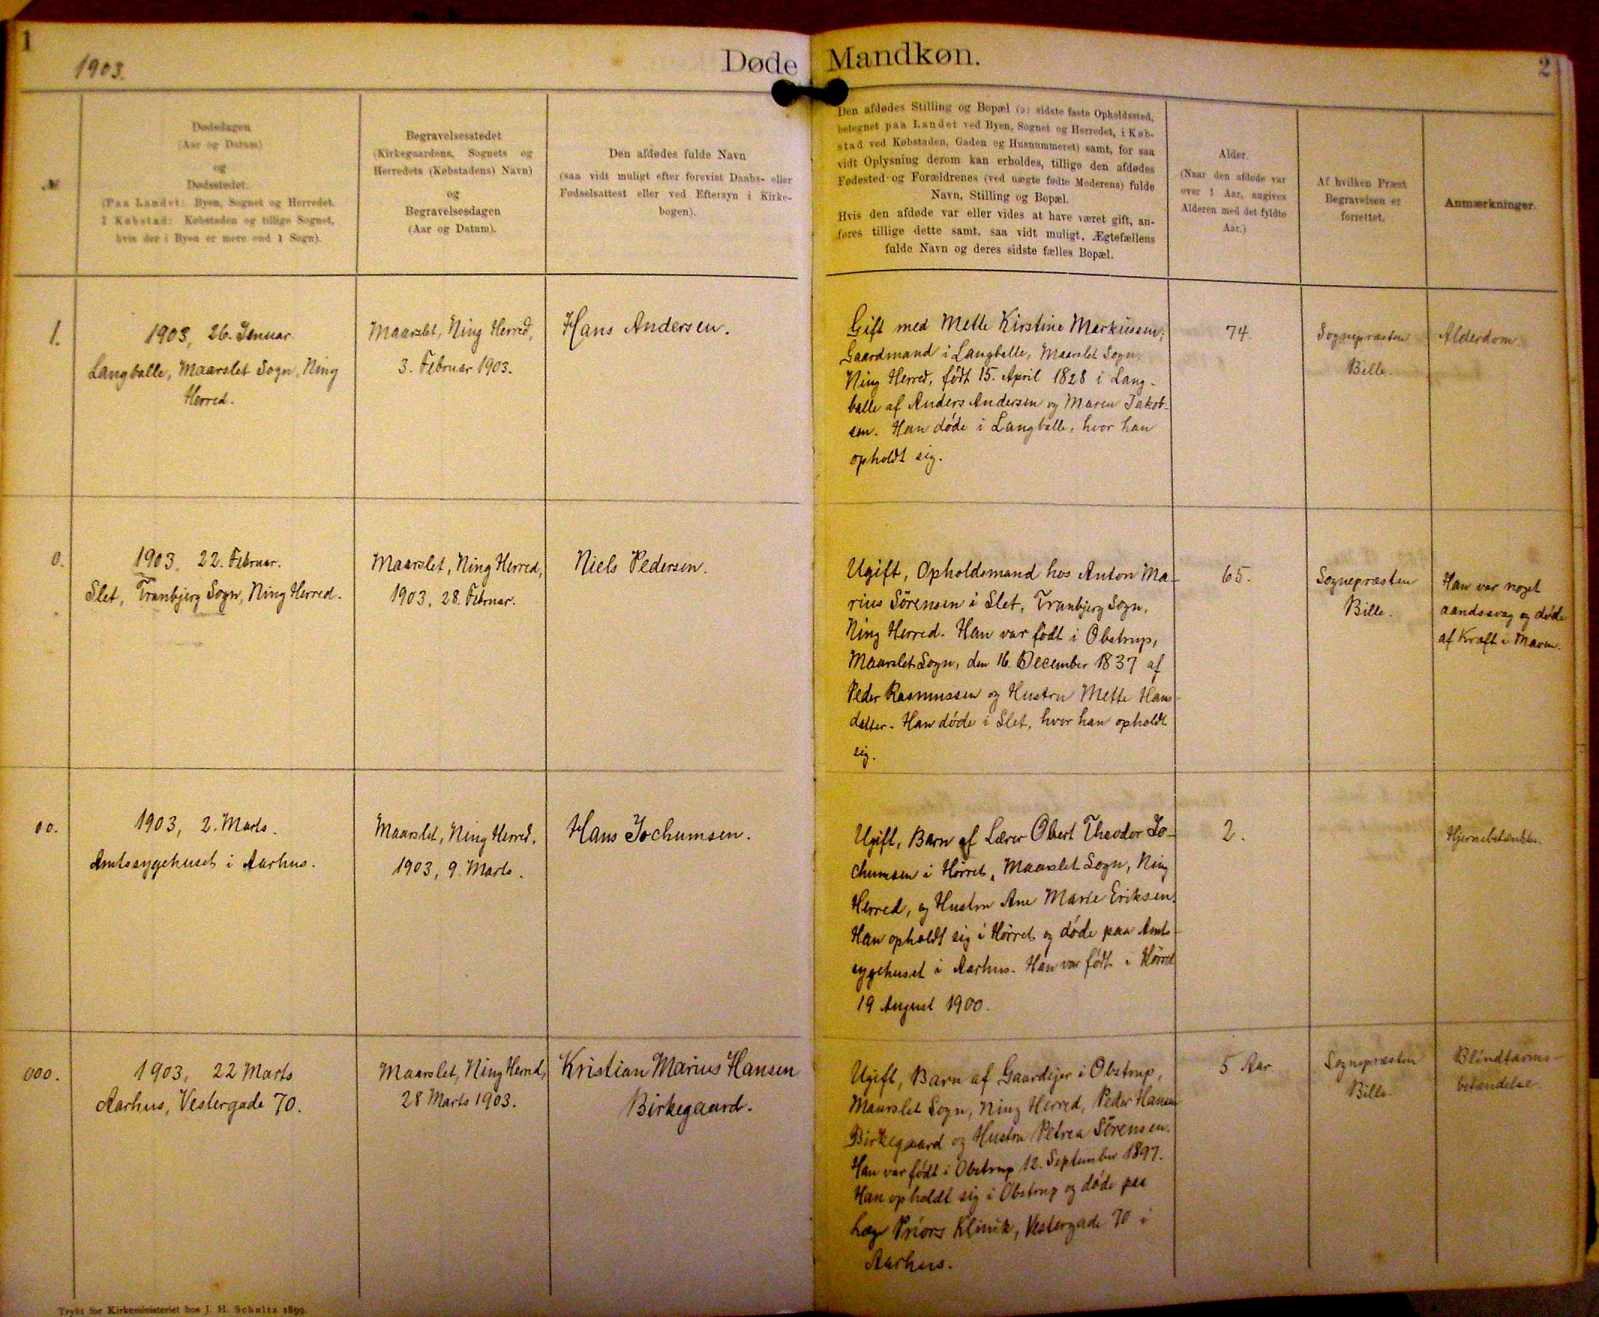 1
1903.
Døde Mandkøn.
2
№
Dødsdagen
(Aar og Datum)
og
Dødsstedet.
(Paa Landet: Byen, Sognet og Herredet.
I Købstad: Købstaden og tillige Sognet,
hvis der i Byen er mere end 1 Sogn).
Begravelsesstedet
(Kirkegaardens, Sognets og
Herredets (Købstadens) Navn)
og
Begravelsesdagen
(Aar og Datum).
Den afdødes fulde Navn
(saa vidt muligt efter forevist Daabs- eller
Fødselsattest eller ved Eftersyn i Kirke-
bogen).
Den afdødes Stilling og Bopæl (o: sidste faste Opholdssted,
betegnet paa Landet ved Byen, Sognet og Herredet, i Køb-
stad ved Købstaden, Gaden og Husnummeret) samt, for saa
vidt Oplysning derom kan erholdes, tillige den afdødes
Fødested og Forældrenes (ved uægte fødte Moderens) fulde
Navn, Stilling og Bopæl.
Hvis den afdøde var eller vides at have været gift, an-
føres tillige dette samt, saa vidt muligt, Ægtefællens
fulde Navn og deres sidste fælles Bopæl.
Alder.
(Naar den afdøde var
over 1 Aar, angives
Alderen med det fyldte
Aar.)
Af hvilken Præst
Begravelsen er
forrettet.
Anmærkninger.
1.
1903, 26. Januar.
Langballe, Maarslet Sogn, Ning
Herred.
Maarslet, Ning Herred,
3. Februar 1903.
Hans Andersen.
Gift med Mette Kirstine Markussen;
Gaardmand i Langballe, Maarslet Sogn,
Ning Herred, født 15. April 1828 i Lang-
balle af Anders Andersen og Maren Jakob-
sen. Han døde i Langballe, hvor han
opholdt sig.
74.
Sognepræsten
Bille.
Alderdom
0.
1903, 22. Februar.
Slet, Tranbjerg Sogn, Ning Herred.
Maarslet, Ning Herred,
1903, 28. Februar.
Niels Pedersen.
Ugift, Opholdsmand hos Anton Ma-
rius Sörensen i Slet, Tranbjerg Sogn,
Ning Herred. Han var født i Obstrup,
Maarslet Sogn, den 16. December 1837 af
Peder Rasmussen og Hustru Mette Hans-
datter. Han døde i Slet, hvor han opholdt
sig.
65.
Sognepræsten
Bille.
Han var noget
aandssvag og døde
af Kræft i Maven.
00.
1903, 2. Marts.
Amtssygehuset i Aarhus.
Maarslet, Ning Herred.
1903, 9. Marts.
Hans Jochumsen.
Ugift, Barn af Lærer Obert Theodor Jo-
chumsen i Hørret, Maarslet Sogn, Ning
Herred, og Hustru Ane Marie Eriksen.
Han opholdt sig i Hørret og døde paa Amts-
sygehuset i Aarhus. Han var født i Hørret
19 August 1900.
2.
000.
1903, 22 Marts
Aarhus, Vestergade 70.
Maarslet, Ning Herred,
28 Marts 1903.
Kristian Marius Hansen
Birkegaard.
Ugift, Barn af Gaardejer i Obstrup,
Maarslet Sogn, Ning Herred, Peder Hansen
Birkegaard og Hustru Petrea Sörensen.
Han var født i Obstrup 12. September 1897.
Han opholdt sig i Obstrup og døde paa
Læge Priors Klinik, Vestergade 70 i
Aarhus.
5 Aar
Sognepræsten
Bille.
Blindtarms-
betændelse.
Trykt for Kirkeministeriet hos J. H. Schultz 1899.